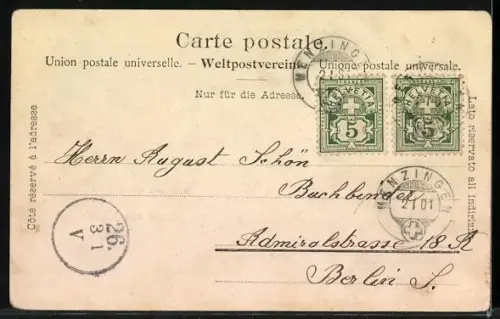 Carte postale.
Union postale universelle. – Weltpostverein. Unione postale universale.
Nur für die Adresse.
Côté réservé à l'adresse
Lato riservato all indirizzo
HELVETIA 5
HELVETIA 5
MENZINGEN
Herrn August Schön
Buchbinder
MENZINGEN
21 01
Admiralstrasse 18 A
Berlin S.
26.
31
V